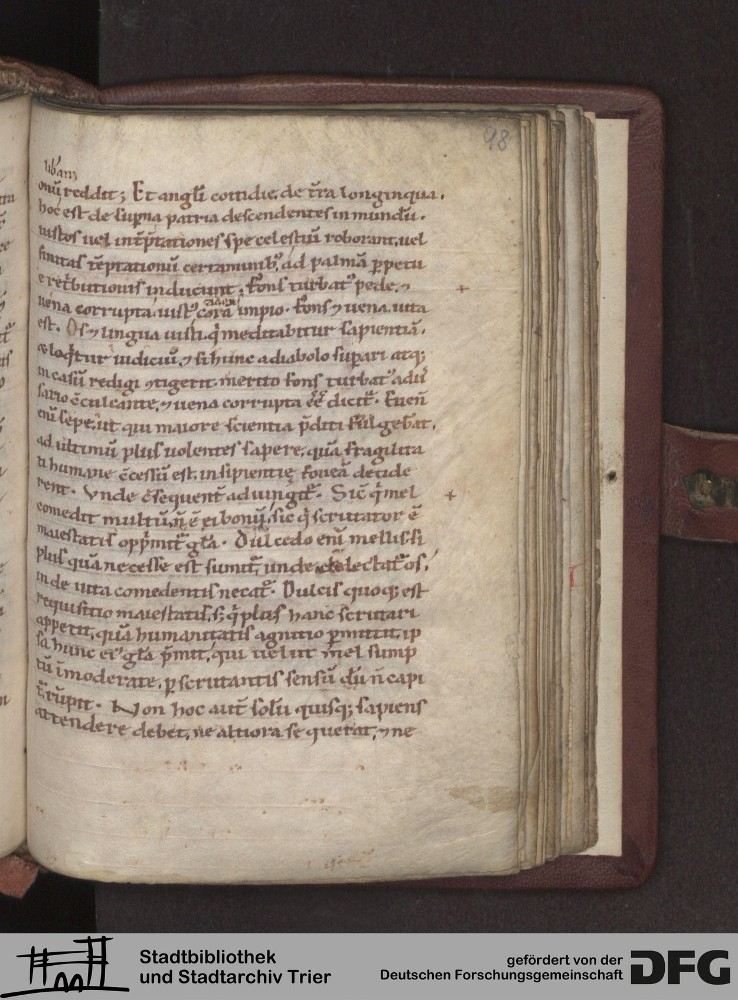 98
onū reddit; Et angl̄i cottidie de t̄ra longinqua.
hoc est de sup̄na patria descendentes in mundū.
iustos uel in tēptationes spe celestiū roborant, uel
finitas tēptationū certaminib; ad palmā ꝑpetu
e ret̄butionis inducunt; fons turbat᷒ pede, ⁊
uena corrupta, iust᷒ corā impio. fons ⁊ uena uita
est. Os ⁊ lingua iusti. q̄ meditabitur sapientiā.
⁊ loq̄tur iudiciū, ⁊ si hunc a diabolo suꝑari atq;
in casū redigi ↄtigerit. merito fons turbat᷒ adū
sario ↄculcante, ⁊ uena corrupta eē dicit᷒. Euen
enī sepe, ut qui maiore scientia p̄diti fulgebāt,
ad ultimū plus uolentes sapere, quā fragilita
ti humane ↄcessū est, in sipientię foueā decide
rent. Vnde ↄsequent̄ adiungit᷒. Sic̄ q̄ mel
comedit multū, n̄ ē ei bonū, sic q̄ scrutator ē
maiestatis opp̄mit᷒ gl̄a. Dulcedo enī mellis, si
plus quā necesse est sumit᷒, unde delectat᷒ os,
in de uita comedentis necat᷒. Dulcis quoq; est
requisitio maiestatis, s; q̄ plus hanc scrutari
appetit, quā humanitatis agnitio ꝑmittit, ip
sa hunc ei᷒ gl̄a p̄mit, qui uelut mel sūmp
tū īmoderate, ꝑscrutantis sensū dū n̄ capi
t᷒, rūpit. Non hoc aut̄ solū quisq; sapiens
attendere debet, ne altiora se querat, ⁊ ne
Stadtbibliothek
und Stadtarchiv Trier
gefördert von der
Deutschen Forschungsgemeinschaft
DFG